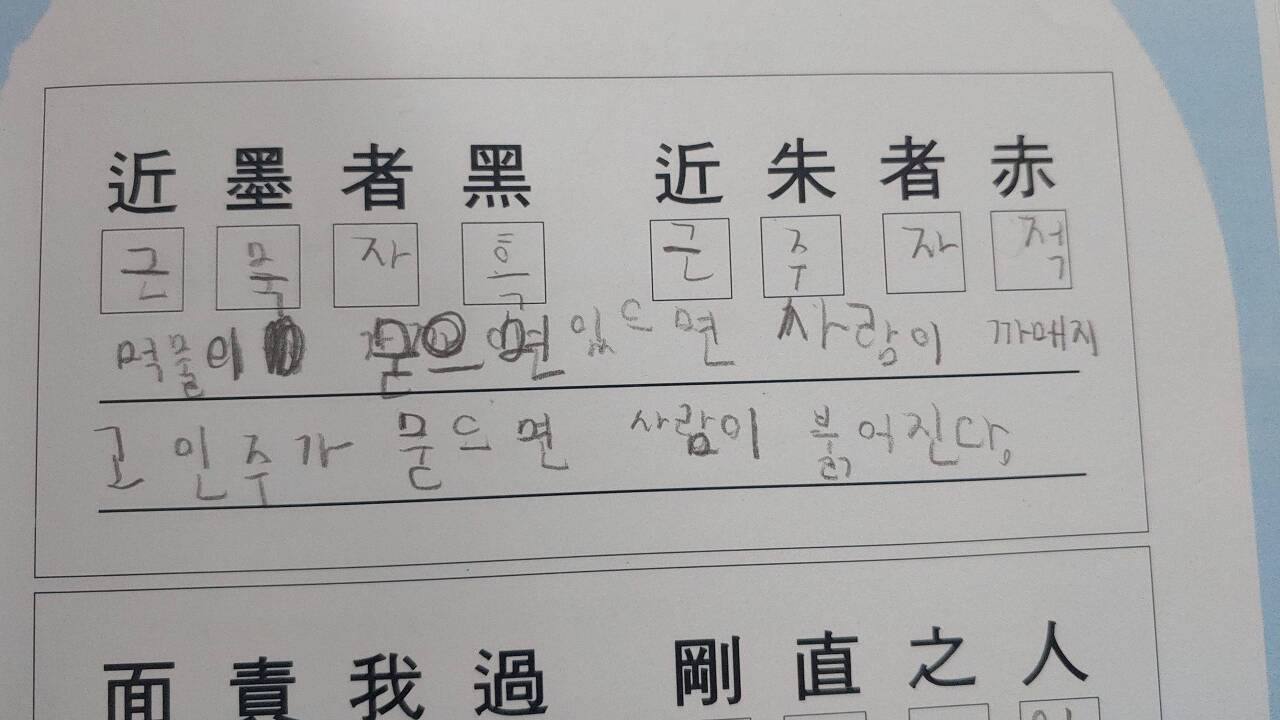 近墨者黑 近朱者赤
근 묵 자 흑 근 주 자 적
먹물이 묻으면 있으면 사람이 까매지
고 인주가 묻으면 사람이 붉어진다,
面責我過 剛直之人